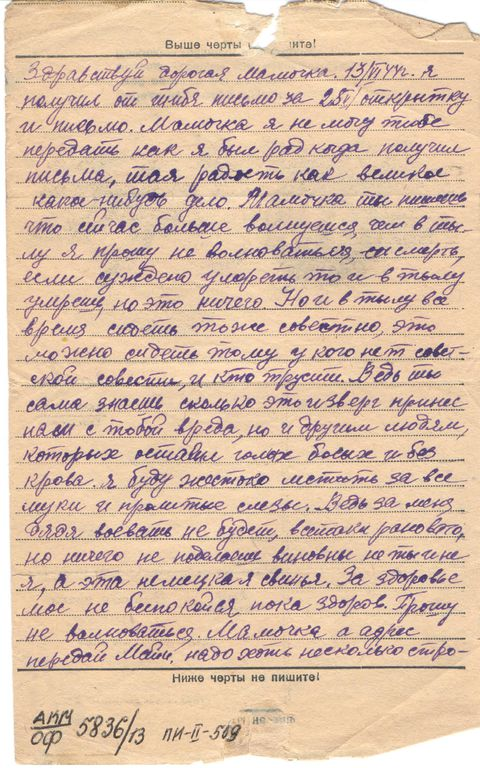 Выше черты пишите!
Здравствуй дорогая Мамочка. 13/VI 44г. Я
получил от тибя письмо за 25/V открытку
и письмо. Мамочка я не могу тибе
передать как я был рад кагда получил
письма, такая радость как великое
какое-нибудь дело. Мамочка ты пишешь
что сейчас больше волнуешся, чем в ты-
лу я прошу не волноваться, а смерть,
если суждено умереть то и в тылу
умреш, но это ничего. Но и в тылу все
время сидеть тоже совестно, это
можно сидеть тому у кого нет совет-
ской совести, и кто трусит. Ведь ты
сама знаеш сколько этот изверг принес
нам с тобой вреда, но и другим людям,
которых оставил голых босых и без
крова. Я буду жестоко мстить за все
муки и пролитые слезы. Ведь за меня
дядя воевать не будет, всетаки рановато,
но ничего не поделаеш виновны не ты и не
я, а эта немецкая свинья. За здоровье
мое не беспокойся, пока здоров. Прошу
не волноваться. Мамочка а адрес
передай надо хоть несколько стро-
Ниже черты не пишите!
АКМ
ОФ 5836/13 ПИ-II-509